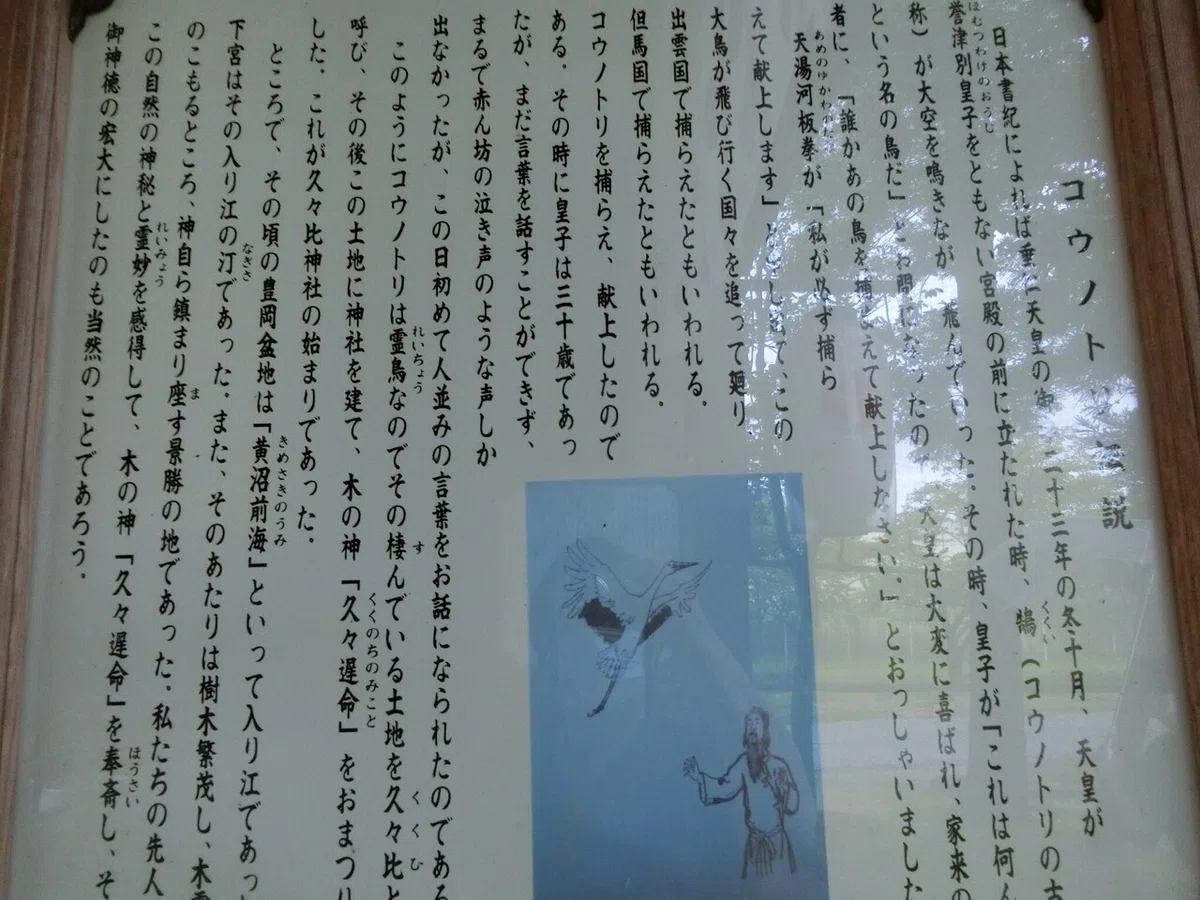 コウノトリ伝説
日本書紀によれば垂仁天皇の御 二十三年の冬十月、天皇が
誉津別皇子をともない宮殿の前に立たれた時、鵠（コウノトリの古
称）が大空を鳴きなが 飛んでいった。その時、皇子が「これは何ん
という名の鳥だ」とお問になったの 天皇は大変に喜ばれ、家来の
者に、「誰かあの鳥を捕まえて献上しなさい。」とおっしゃいました
天湯河板挙が、「私が必ず捕ら
えて献上します」と て、この
大鳥が飛び行く国々を追って廻り、
出雲国で捕らえたともいわれる。
但馬国で捕らえたともいわれる。
コウノトリを捕らえ、献上したので
ある。その時に皇子は三十歳であっ
たが、まだ言葉を話すことができず、
まるで赤ん坊の泣き声のような声しか
出なかったが、この日初めて人並みの言葉をお話になられたのである
このようにコウノトリは霊鳥なのでその棲んでいる土地を久々比と
呼び、その後この土地に神社を建て、木の神「久々遅命」をおまつり
した。これが久々比神社の始まりであった。
ところで、その頃の豊岡盆地は「黄沼前海」といって入り江であっ
下宮はその入り江の汀であった。また、そのあたりは樹木繁茂し、木霊
のこもるところ、神自ら鎮まり座す景勝の地であった。私たちの先人
この自然の神秘と霊妙を感得して、木の神「久々遅命」を奉斎し、そ
御神徳の宏大にしたのも当然のことであろう。